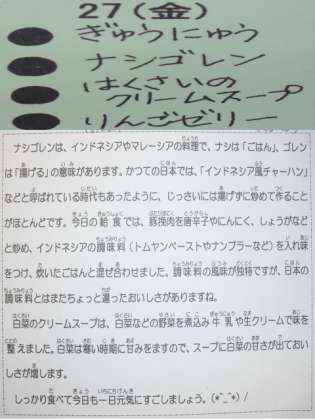 27(金)
ぎゅうにゅう
ナシゴレン
はくさいの
クリームスープ
りんごゼリー
ナシゴレンは、インドネシアやマレーシアの料理で、ナシは「ごはん」、ゴレン
は「揚げる」の意味があります。かつての日本では、「インドネシア風チャーハン」
などと呼ばれている時代もあったように、じっさいには揚げずに炒めて作ること
がほとんどです。今日の給食では、豚挽肉を唐辛子やにんにく、しょうがなど
と炒め、インドネシアの調味料(トムヤンペーストやナンプラーなど)を入れ味
をつけ、炊いたごはんと混ぜ合わせました。調味料の風味が独特ですが、日本の
調味料とはまたちょっと違ったおいしさがありますね。
白菜のクリームスープは、白菜などの野菜を煮込み牛乳や生クリームで味を
整えました。白菜は寒い時期に甘みをますので、スープに白菜の甘さが出ておい
しさが増します。
しっかり食べて今日も一日元気にすごしましょう。(*^_^*)/